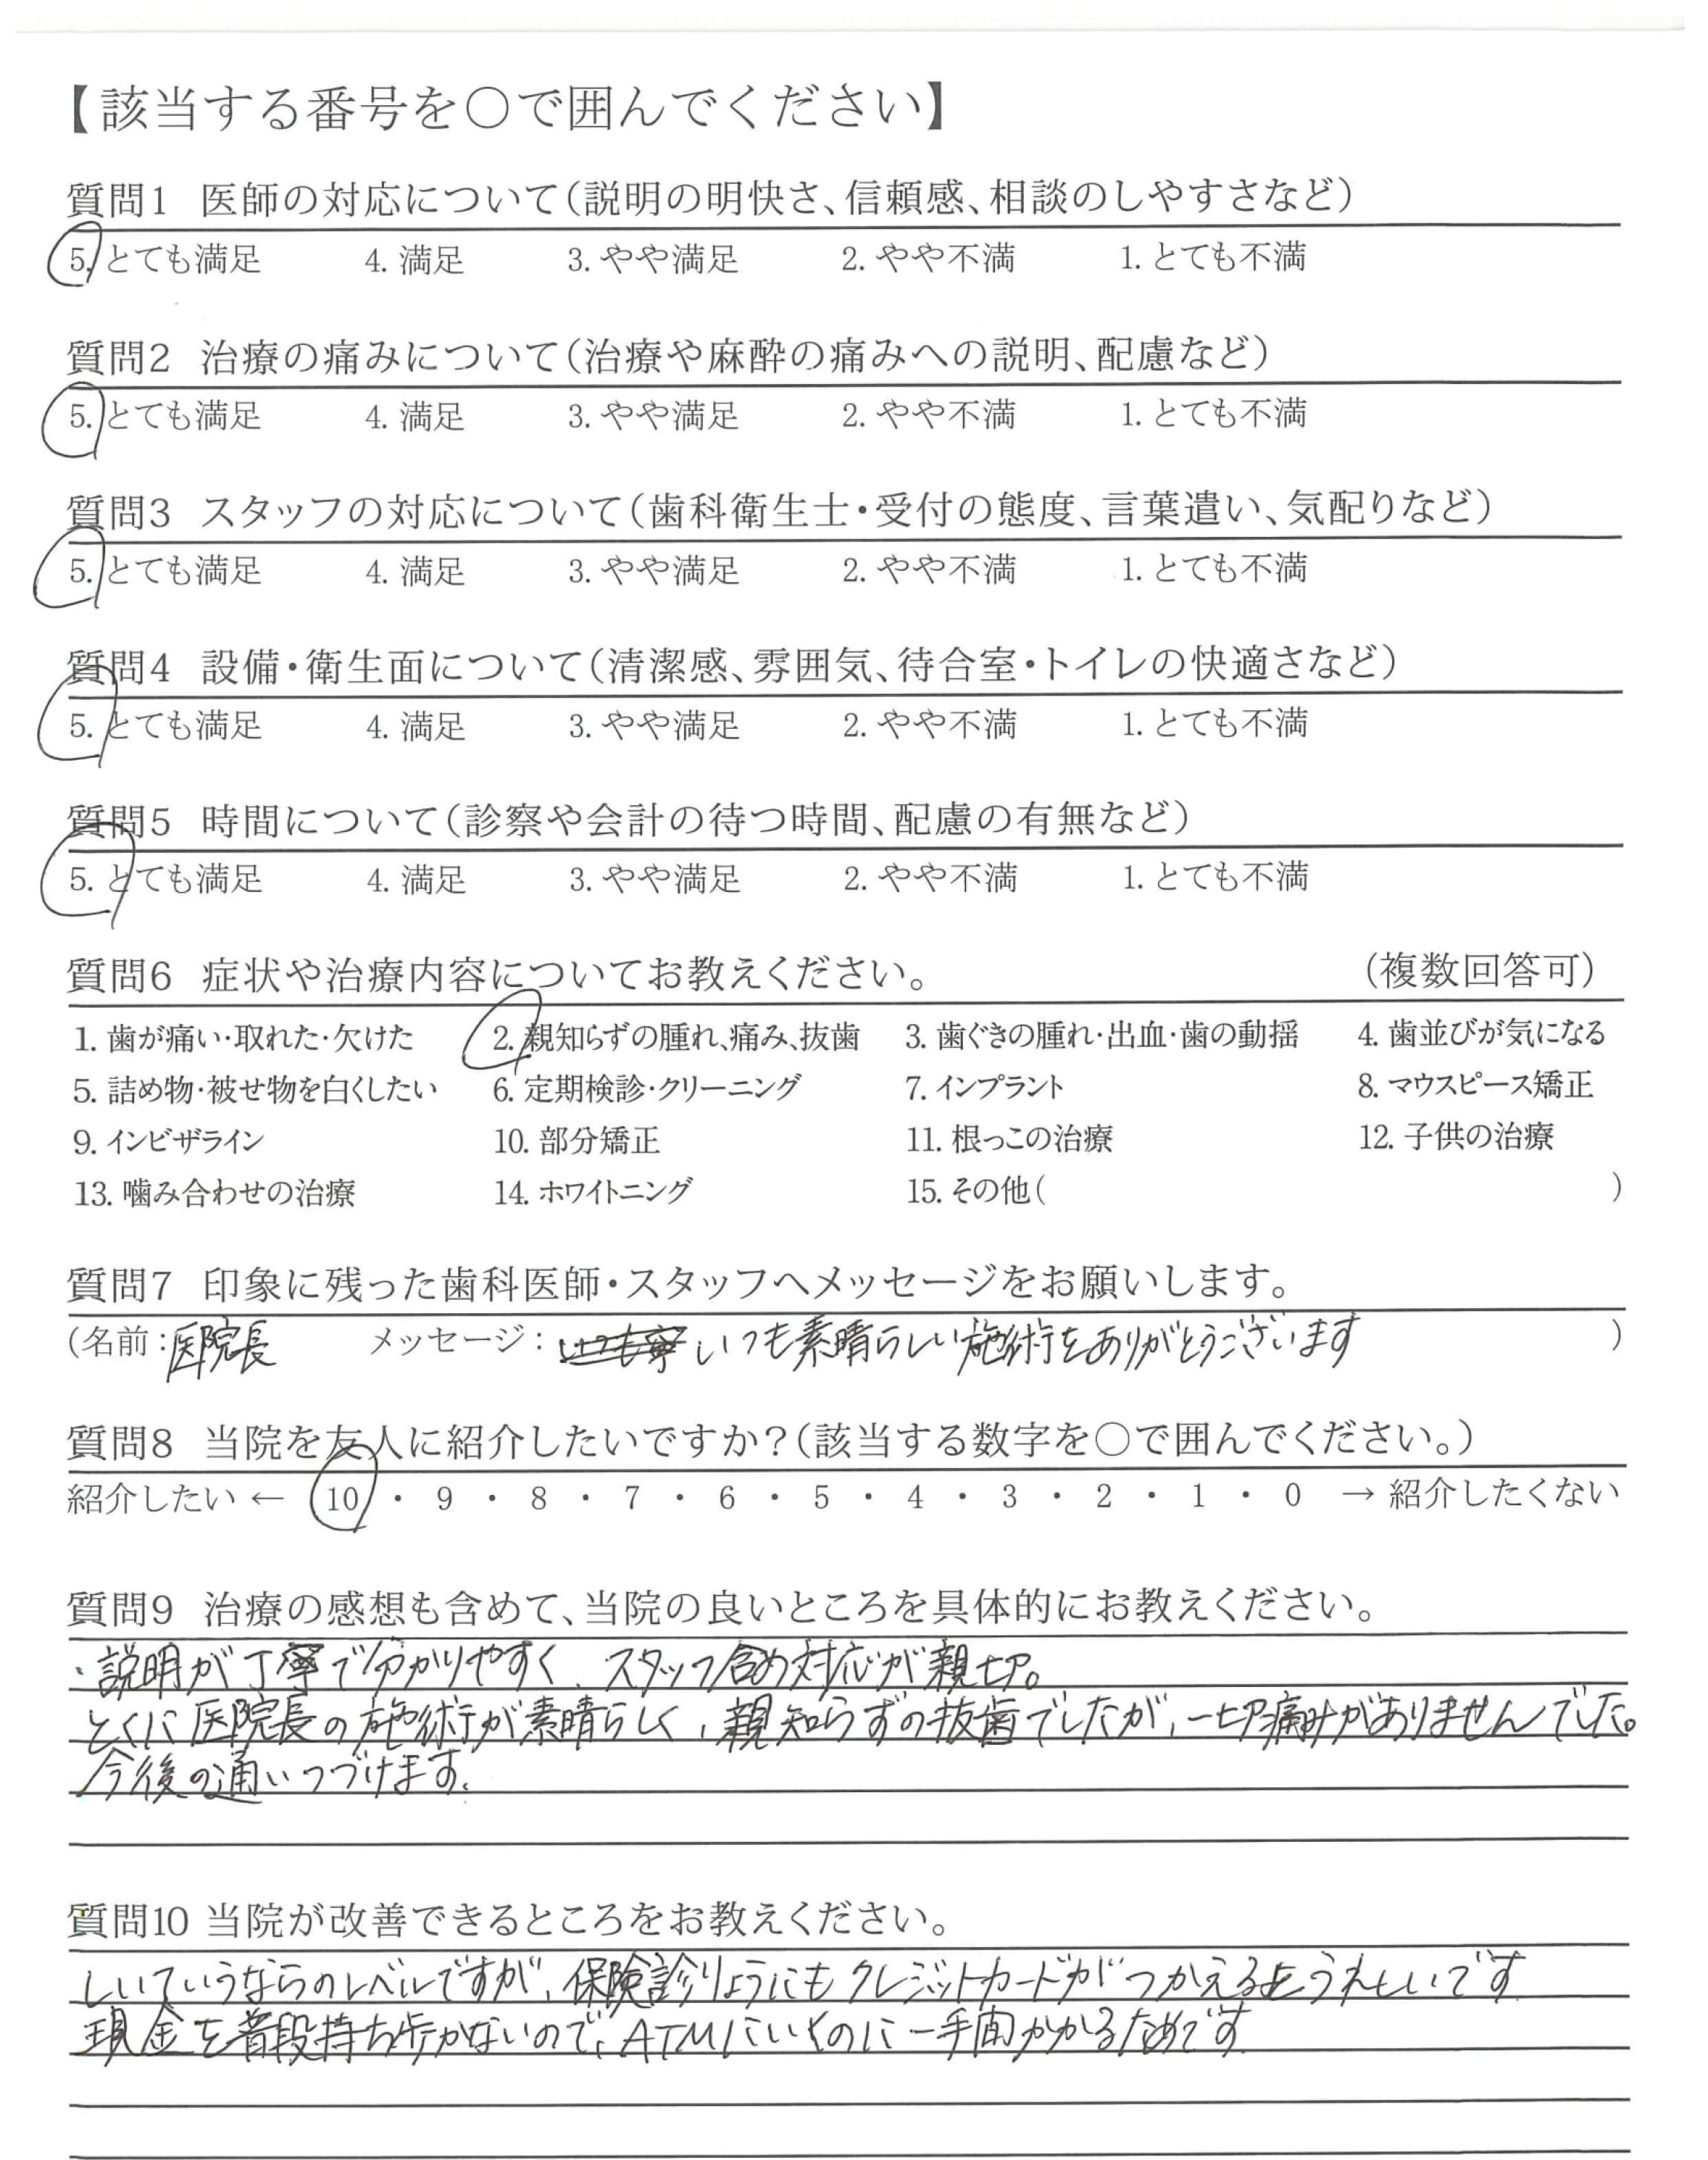 【該当する番号を○で囲んでください】
質問1 医師の対応について(説明の明快さ、信頼感、相談のしやすさなど)
5. とても満足 4. 満足 3. やや満足 2. やや不満 1. とても不満
質問2 治療の痛みについて(治療や麻酔の痛みへの説明、配慮など)
5. とても満足 4. 満足 3. やや満足 2. やや不満 1. とても不満
質問3 スタッフの対応について(歯科衛生士・受付の態度、言葉遣い、気配りなど)
5. とても満足 4. 満足 3. やや満足 2. やや不満 1. とても不満
質問4 設備・衛生面について(清潔感、雰囲気、待合室・トイレの快適さなど)
5. とても満足 4. 満足 3. やや満足 2. やや不満 1. とても不満
質問5 時間について(診察や会計の待つ時間、配慮の有無など)
5. とても満足 4. 満足 3. やや満足 2. やや不満 1. とても不満
質問6 症状や治療内容についてお教えください。 (複数回答可)
1. 歯が痛い・取れた・欠けた 2. 親知らずの腫れ、痛み、抜歯 3. 歯ぐきの腫れ・出血・歯の動揺 4. 歯並びが気になる
5. 詰め物・被せ物を白くしたい 6. 定期検診・クリーニング 7. インプラント 8. マウスピース矯正
9. インビザライン 10. 部分矯正 11. 根っこの治療 12. 子供の治療
13. 噛み合わせの治療 14. ホワイトニング 15. その他( )
質問7 印象に残った歯科医師・スタッフへメッセージをお願いします。
(名前:医院長 メッセージ: いつも素晴らしい施術をありがとうございます )
質問8 当院を友人に紹介したいですか?(該当する数字を○で囲んでください。)
紹介したい ← 10 ・ 9 ・ 8 ・ 7 ・ 6 ・ 5 ・ 4 ・ 3 ・ 2 ・ 1 ・ 0 → 紹介したくない
質問9 治療の感想も含めて、当院の良いところを具体的にお教えください。
・説明が丁寧で分かりやすく、スタッフ含め対応が親切。
とくに医院長の施術が素晴らしく、親知らずの抜歯でしたが、一切痛みがありませんでした。
今後の通いつづけます。
質問10 当院が改善できるところをお教えください。
しいていうならのレベルですが、保険診りょうにもクレジットカードがつかえるとうれしいです
現金を普段持ち歩かないので、ATMにいくのに一手間かかるためです